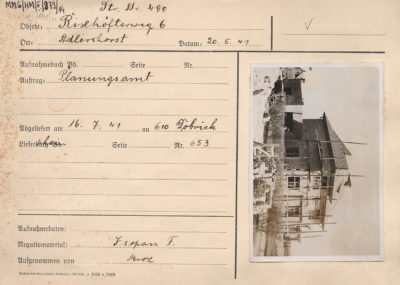 MMG/HM/F/873/14
Str. Nr. 490
Objekt: Rixhöfterweg 6
Ort: Adlershorst Datum: 20.5.41
Aufnahmebuch Bd. Seite Nr.
Auftrag: Planungsamt
Abgeliefert am 16.7.41 an 610 Dobrick
Lieferbuch Bd. Seite Nr. 653
Aufnahmedaten:
Negativmaterial: Isopan F.
Aufgenommen von